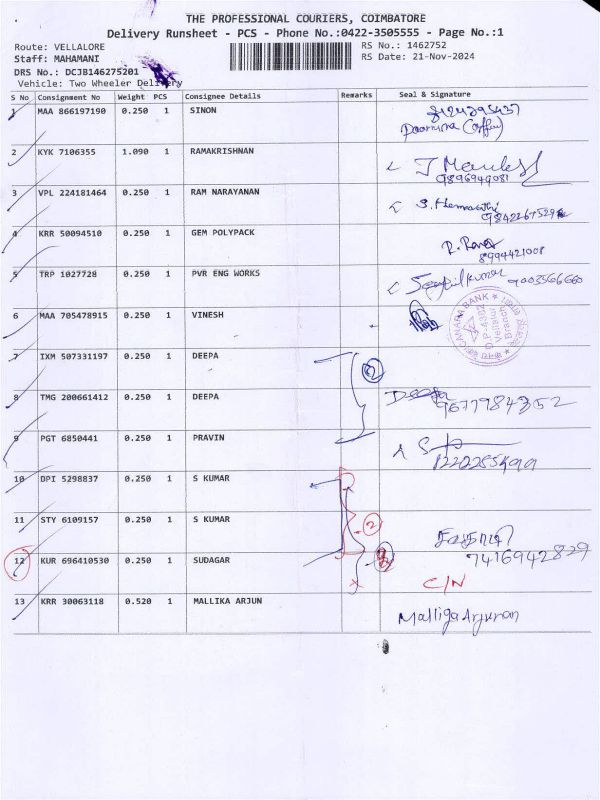 THE PROFESSIONAL COURIERS, COIMBATORE
Delivery Runsheet - PCS - Phone No.:0422-3505555 - Page No.:1
Route: VELLALORE RS No.: 1462752
Staff: MAHAMANI RS Date: 21-Nov-2024
DRS No.: DCJB146275201
Vehicle: Two Wheeler Delivery
S No Consignment No Weight PCS Consignee Details Remarks Seal & Signature
MAA 866197190 0.250 1 SINON
2 KYK 7106355 1.090 1 RAMAKRISHNAN
9896949081
3 VPL 224181464 0.250 1 RAM NARAYANAN
4 KRR 50094510 0.250 1 GEM POLYPACK
8994421008
5 TRP 1027728 0.250 1 PVR ENG WORKS
9003566660
6 MAA 705478915 1 VINESH
CANARA BANK
Vellalur
Branch
7 IXM 507331197 0.250 1 DEEPA
2
8 TMG 200661412 0.250 1 DEEPA Deepa
9677984352
9 PGT 6850441 0.250 1 PRAVIN
10 DPI 5298837 0.250 1 S KUMAR
11 STY 6109157 0.250 1 S KUMAR
2
7416942829
12 KUR 696410530 0.250 1 SUDAGAR
C/N
13 KRR 30063118 0.520 1 MALLIKA ARJUN Malliga Arjunan